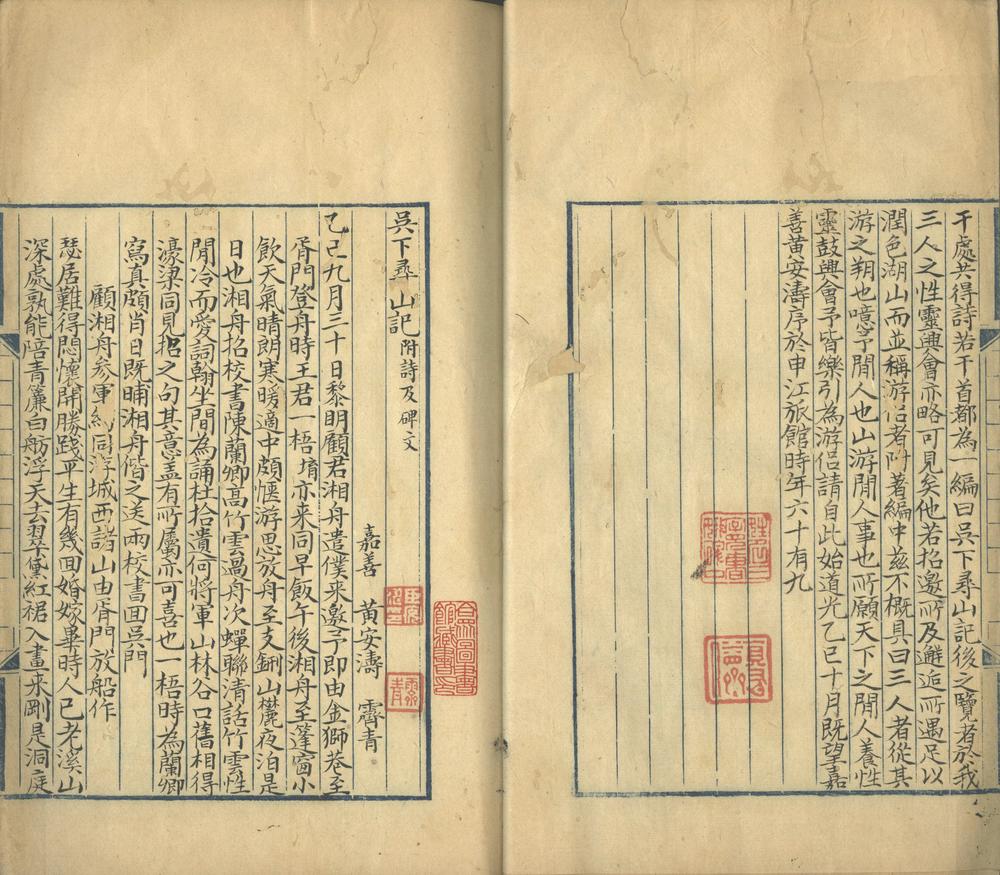 干處共得詩若干首都為一編曰吳下尋山記後之覽者於我
三人之性靈興會亦略可見矣他若招邀所及邂逅所遇足以
潤色湖山而並稱游侶者附著編中茲不概具曰三人者從其
游之朔也噫予閒人也山游閒人事也所願天下之閒人養性
靈鼓興會予皆樂引為游侶請自此始道光乙巳十月既望嘉
善黃安濤序於申江旅館時年六十有九
吳下尋山記附詩及碑文
嘉善 黃安濤 霽青
乙巳九月三十日黎明顧君湘舟遣僕来邀予即由金獅巷至
胥門登舟時王君一梧堉亦来同早飯午後湘舟至篷窗小
飲天氣晴朗寒暖適中頗愜游思放舟至支鉶山麓夜泊是
日也湘舟招校書陳蘭卿高竹雲過舟次蟬聯清話竹雲性
閒冷而愛詞翰坐間為誦杜拾遺何將軍山林谷口舊相得
濠梁同見招之句其意盖有所屬亦可喜也一梧時為蘭卿
寫真頗肖日既晡湘舟偕之送兩校書回吳門
顧湘舟參軍 同游城西諸山由胥門放船作
瑟居難得悶懷開勝踐平生有幾回婚嫁畢時人已老溪山
深處孰能陪青簾白舫浮天去翠黛紅裙入畫来剛是洞庭